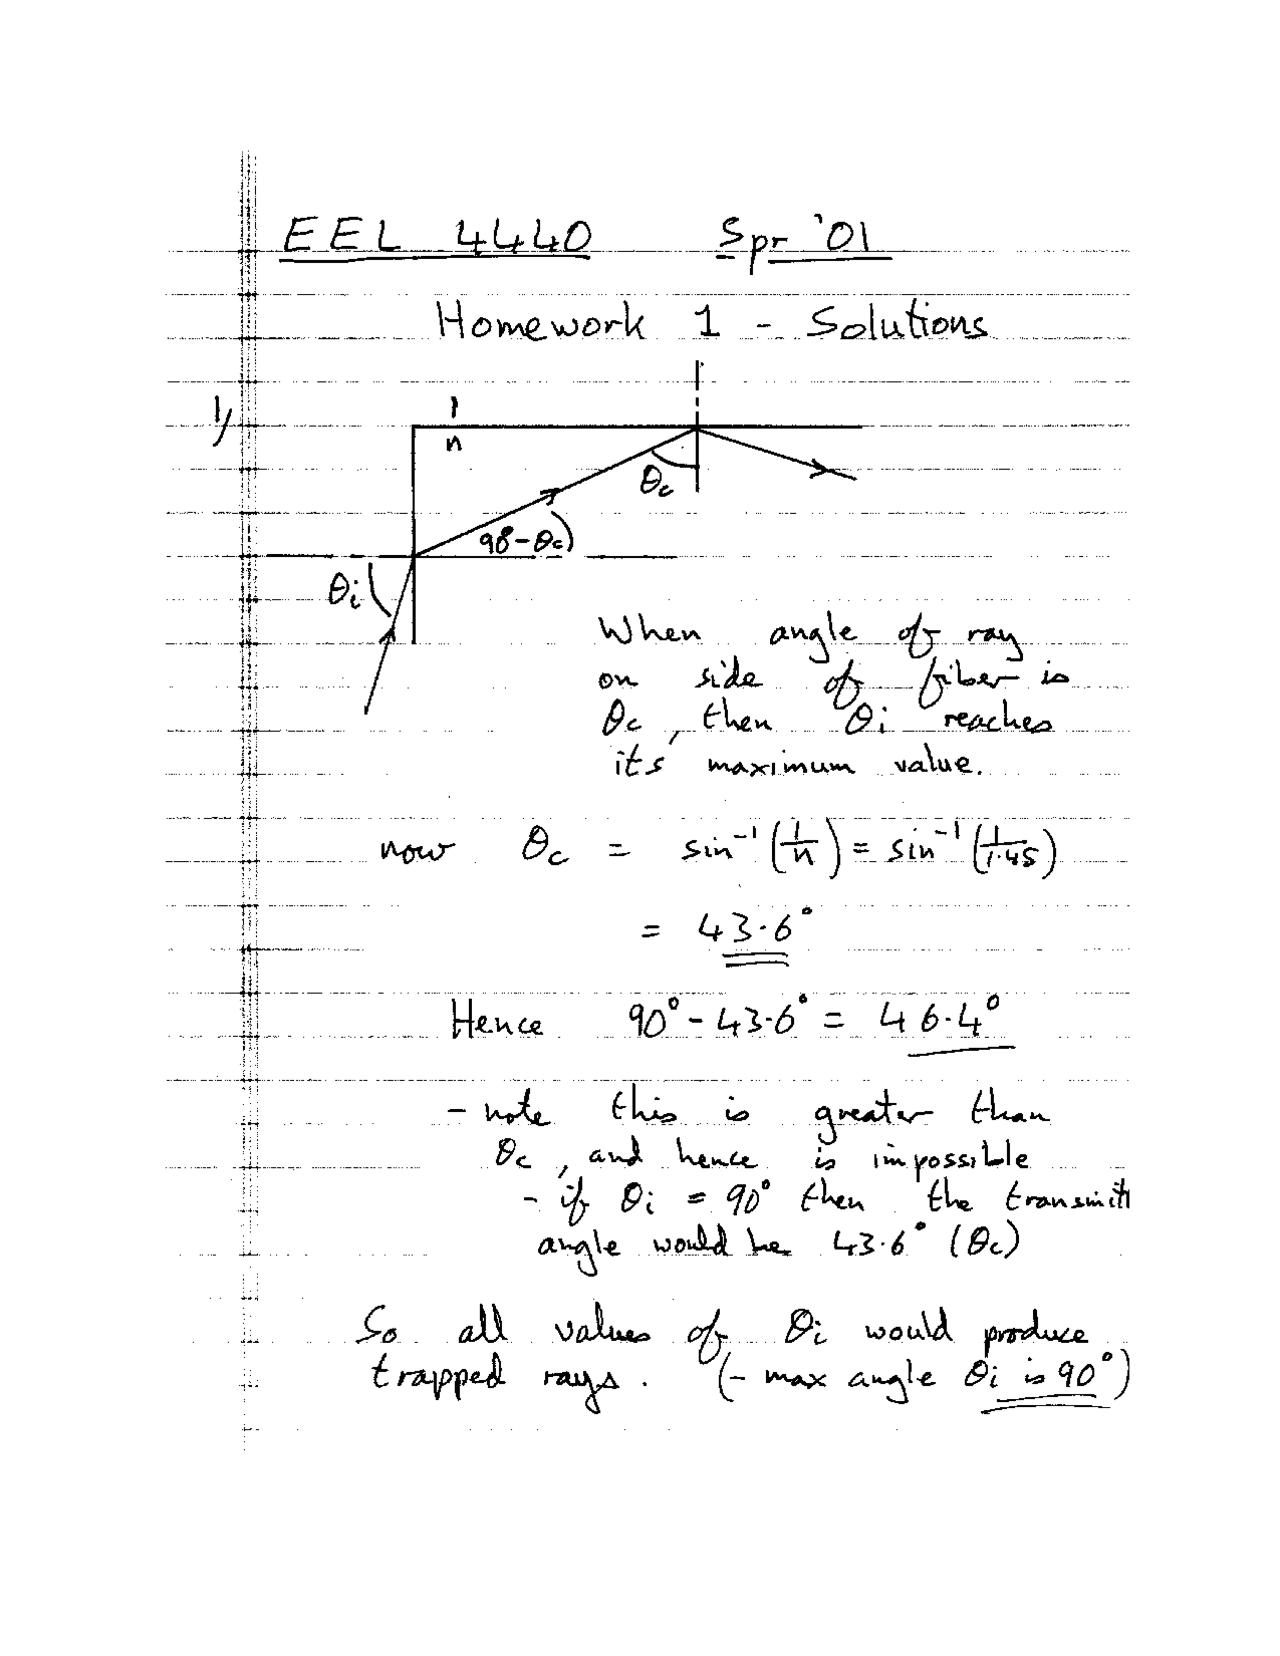 EEL 4440 Spr '01
Homework 1 - Solutions
1/
1
n
θc
90°-θc
θi
When angle of ray
on side of fiber is
θc, then θi reaches
it's maximum value.
now θc = sin⁻¹(1/n) = sin⁻¹(1/1.45)
= 43.6°
Hence 90° - 43.6° = 46.4°
- note this is greater than
θc, and hence is impossible
- if θi = 90° then the transmitt
angle would be 43.6° (θc)
So all values of θi would produce
trapped rays. (- max angle θi is 90°)